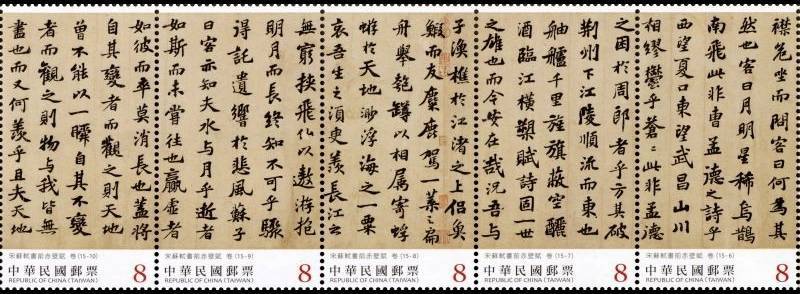 襟危坐而問客曰何為其
然也客曰月明星稀烏鵲
南飛此非曹孟德之詩乎
西望夏口東望武昌山川
相繆鬱乎蒼〻此非孟德
之困於周郎者乎方其破
荊州下江陵順流而東也
舳艫千里旌旗蔽空釃
酒臨江橫槊賦詩固一世
之雄也而今安在哉況吾與
子漁樵於江渚之上侶魚
鰕而友麋鹿駕一葉之扁
舟舉匏罇以相屬寄蜉
蝣於天地渺浮海之一粟
哀吾生之須臾羨長江之
無窮挾飛仙以遨遊抱
明月而長終知不可乎驟
得託遺響於悲風蘇子
曰客亦知夫水與月乎逝者
如斯而未嘗往也贏虛者
如彼而卒莫消長也蓋將
自其變者而觀之則天地
曾不能以一瞬自其不變
者而觀之則物與我皆無
盡也而又何羨乎且夫天地
宋蘇軾書前赤壁賦 卷 (15-10)
中華民國郵票 8
REPUBLIC OF CHINA (TAIWAN)
宋蘇軾書前赤壁賦 卷 (15-9)
中華民國郵票 8
REPUBLIC OF CHINA (TAIWAN)
宋蘇軾書前赤壁賦 卷 (15-8)
中華民國郵票 8
REPUBLIC OF CHINA (TAIWAN)
宋蘇軾書前赤壁賦 卷 (15-7)
中華民國郵票 8
REPUBLIC OF CHINA (TAIWAN)
宋蘇軾書前赤壁賦 卷 (15-6)
中華民國郵票 8
REPUBLIC OF CHINA (TAIWAN)